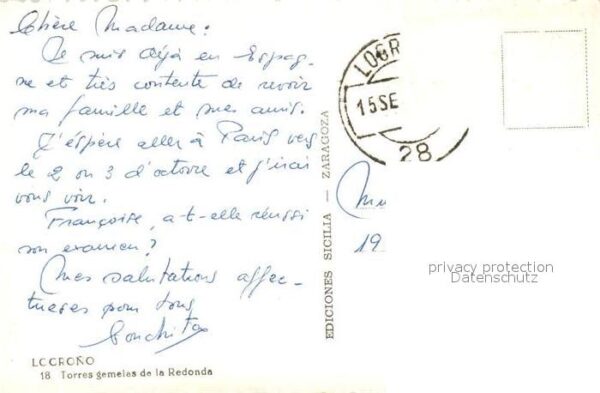 Chère Madame:
Je suis déjà en Espag-
ne et très contente de revoir
ma famille et mes amis.
J'espère aller à Paris vers
le 2 ou 3 d'octovre et j'irai
vous voir.
Françoise, a-t-elle réussi
son examen?
Mes salutations affec-
tueses pour tous
Conchita
LOGROÑO
18 Torres gemelas de la Redonda
EDICIONES SICILIA — ZARAGOZA
LOGR
15 SE
28
19
privacy protection
Datenschutz